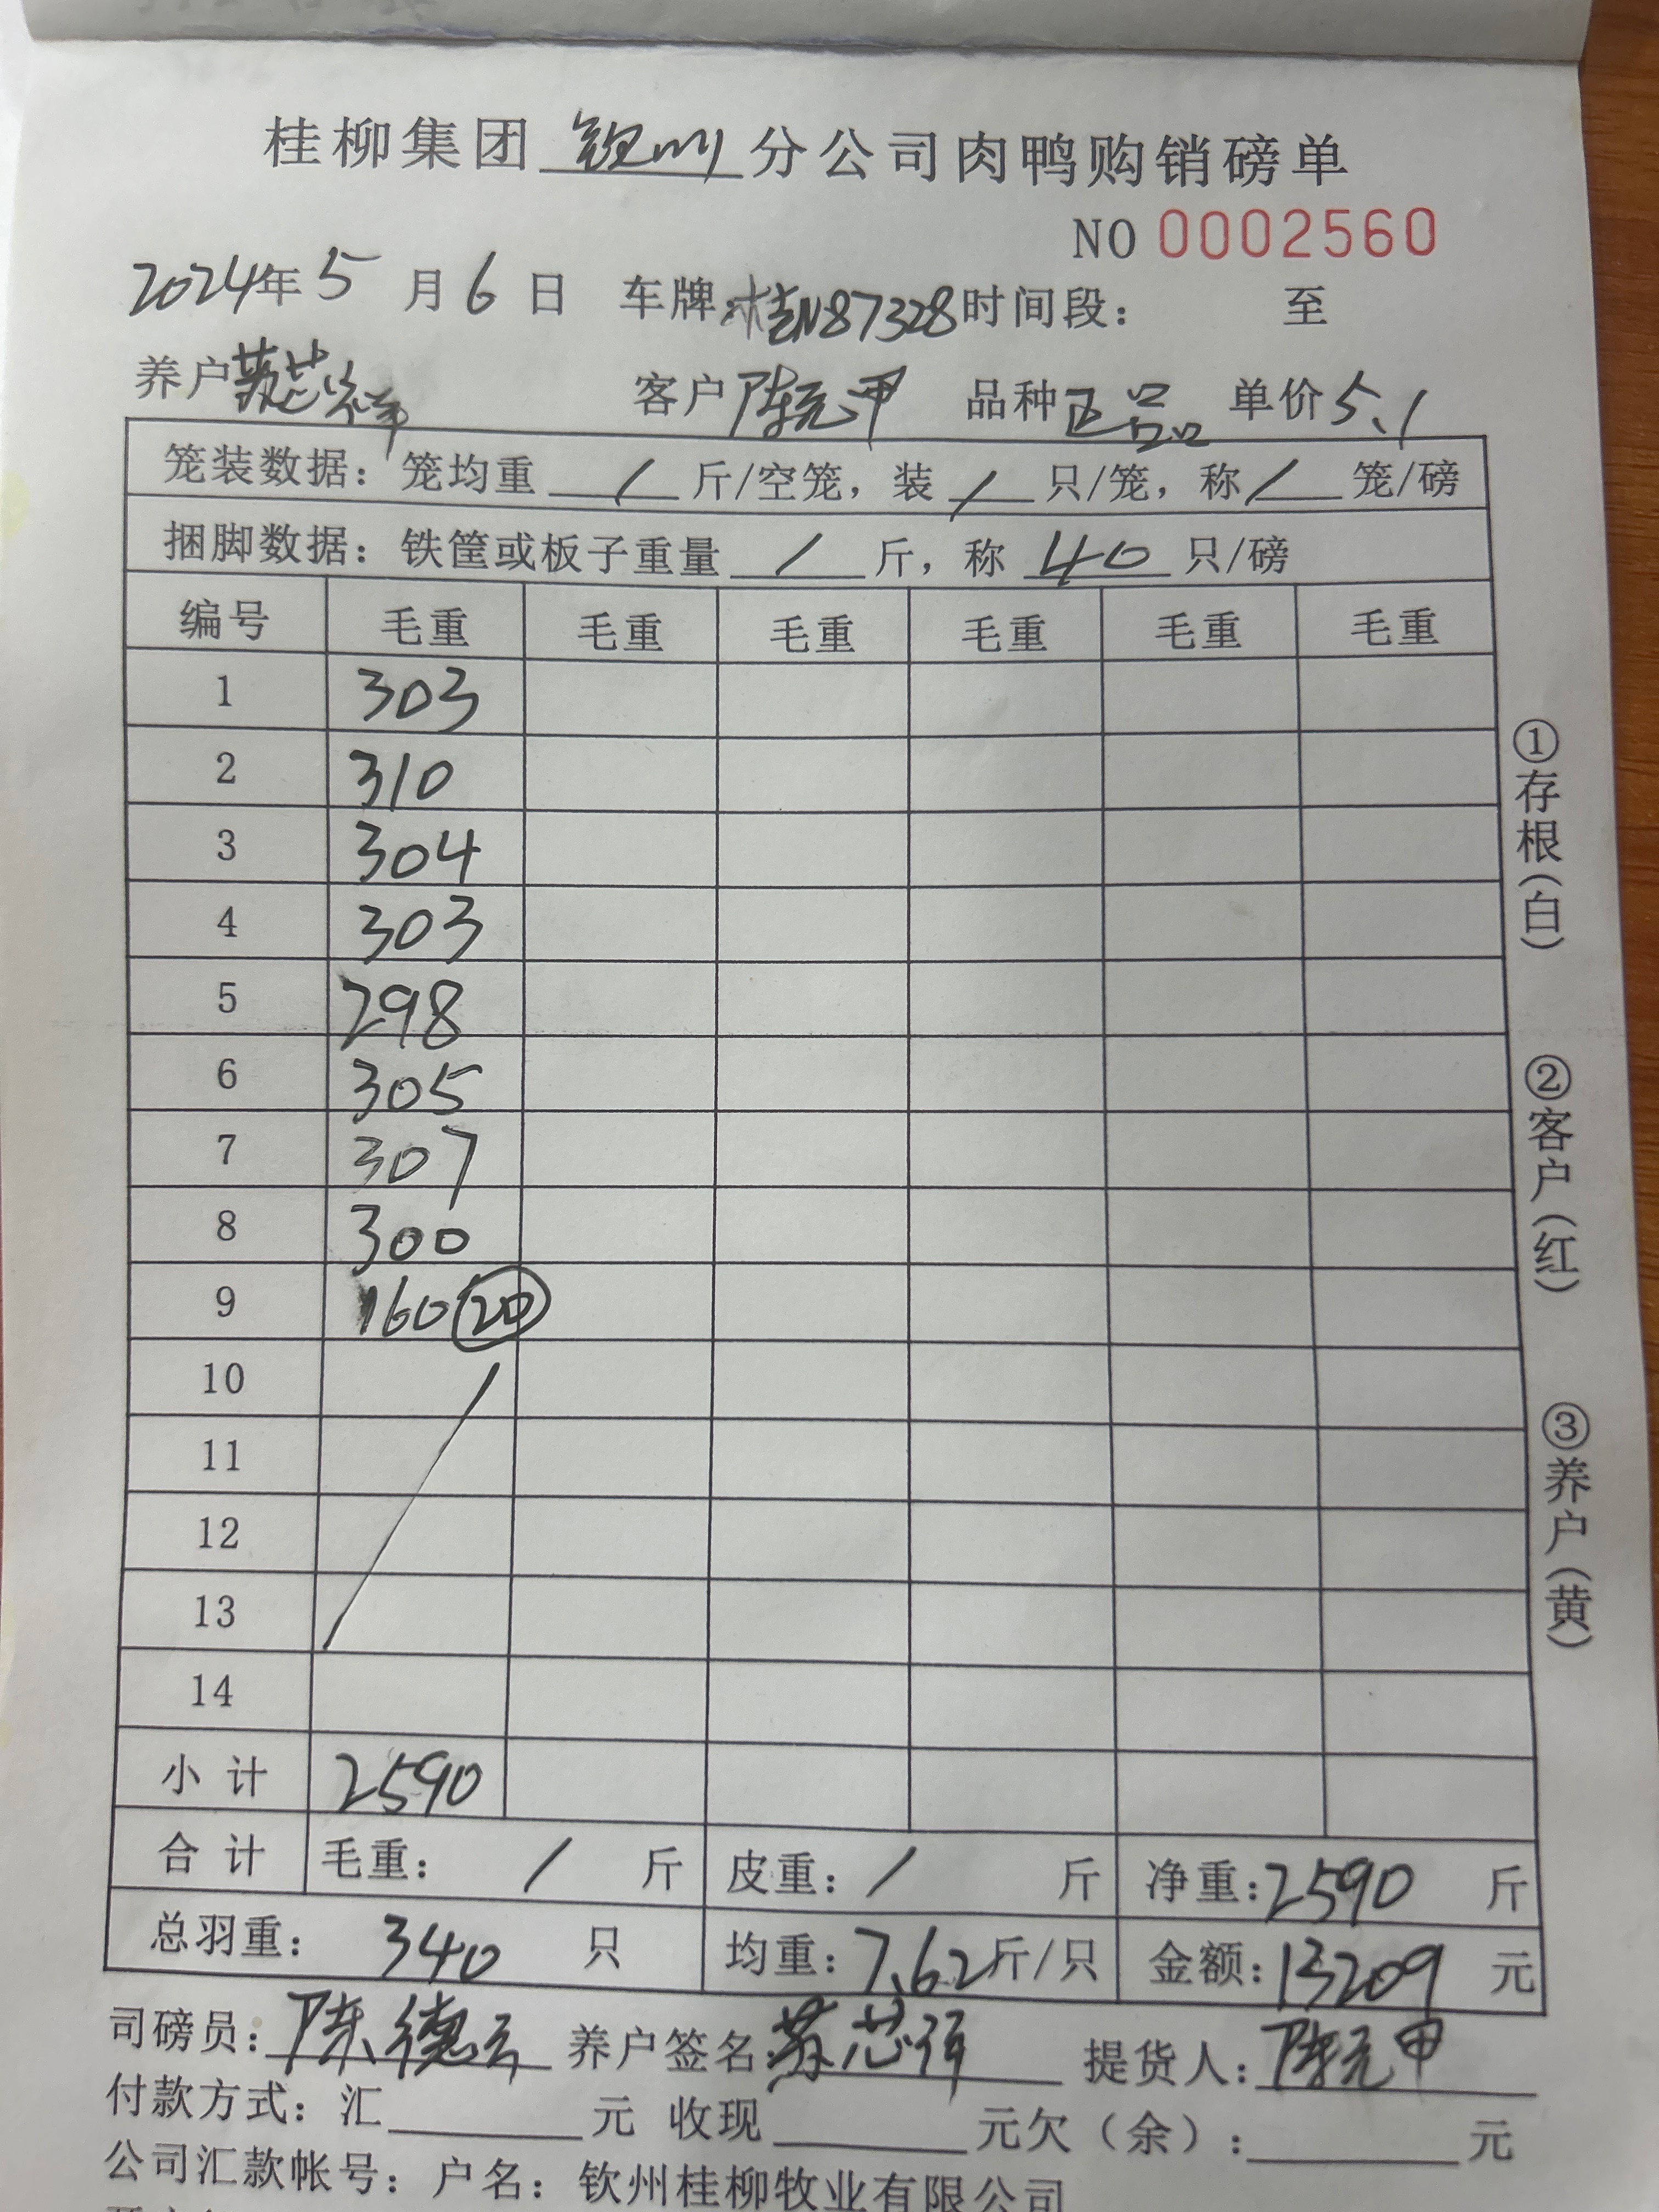 桂柳集团 钦州 分公司肉鸭购销磅单
NO 0002560
2024年 5 月 6 日 车牌:桂N87328 时间段: 至
养户 苏芯祥 客户 陈元甲 品种 正品 单价 5.1
笼装数据: 笼均重 / 斤/空笼, 装 / 只/笼, 称 / 笼/磅
捆脚数据: 铁筐或板子重量 / 斤, 称 40 只/磅
编号 毛重 毛重 毛重 毛重 毛重 毛重
1 303
2 310
3 304
4 303
5 298
6 305
7 307
8 300
9 160 20
10
11
12
13
14
小计 2590
合计 毛重: / 斤 皮重: / 斤 净重: 2590 斤
总羽重: 340 只 均重: 7.62 斤/只 金额: 13209 元
司磅员: 陈德云 养户签名: 苏芯祥 提货人: 陈元甲
付款方式: 汇 元 收现 元欠(余): 元
公司汇款帐号: 户名: 钦州桂柳牧业有限公司
①存根(白)
②客户(红)
③养户(黄)